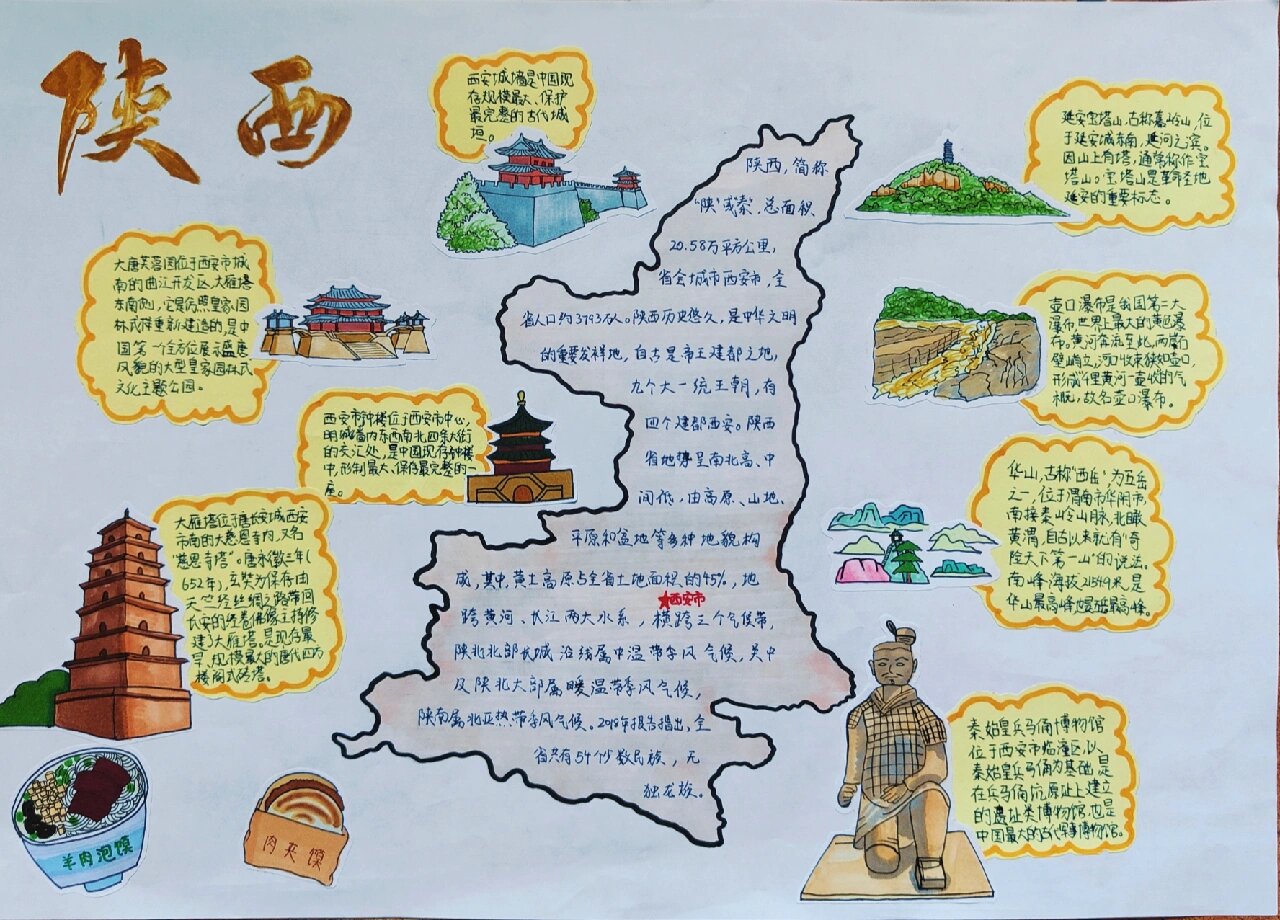 陕西
西安城墙是中国现
存规模最大、保护
最完整的古代城
垣。
延安宝塔山,古称嘉岭山,位
于延安城东南,延河之滨。
因山上有塔,通常称作宝
塔山。宝塔山是革命圣地
延安的重要标志。
大唐芙蓉园位于西安市城
南的曲江开发区,大雁塔
东南侧,它是仿照皇家园
林式样重新建造的,是中
国第一个全方位展示盛唐
风貌的大型皇家园林式
文化主题公园。
陕西,简称
“陕”或“秦”,总面积
20.58万平方公里,
省会城市西安市,全
省人口约3793万人。陕西历史悠久,是中华文明
的重要发祥地,自古是帝王建都之地,
九个大一统王朝,有
四个建都西安。陕西
省地势呈南北高、中
间低,由高原、山地、
平原和盆地等多种地貌构
成,其中,黄土高原占全省土地面积的45%,地
西安市
跨黄河、长江两大水系,横跨三个气候带,
陕北北部长城沿线属中温带季风气候,关中
及陕北大部属暖温带季风气候,
陕南属北亚热带季风气候。2018年报告指出,全
省共有54个少数民族,无
独龙族。
壶口瀑布是我国第二大
瀑布,世界上最大的黄色瀑
布,黄河奔流至此,两岸石
壁峭立,河口收束狭如壶口,
形成“俚黄河一壶收”的气
概,故名壶口瀑布。
西安市钟楼位于西安市中心,
明城墙内东西南北四条大街
的交汇处,是中国现存钟楼
中,形制最大、保存最完整的一
座。
大雁塔位于唐长安城西安
市南的大慈恩寺内,又名
“慈恩寺塔”。唐永徽三年(
652年),玄奘为保存由
天竺经丝绸之路带回
长安的经卷佛像主持修
建了大雁塔。是现存最
早、规模最大的唐代四方
楼阁式砖塔。
华山,古称“西岳”,为五岳
之一,位于渭南市华阴市,
南接秦岭山脉,北瞰
黄渭,自古以来就有“奇
险天下第一山”的说法。
南峰海拔2154.9米,是
华山最高峰也是五岳最高峰。
秦始皇兵马俑博物馆
位于西安市临潼区,以
秦始皇兵马俑为基础,是
在兵马俑坑原址上建立
的遗址类博物馆,也是
中国最大的古代军事博物馆。
羊肉泡馍
肉夹馍